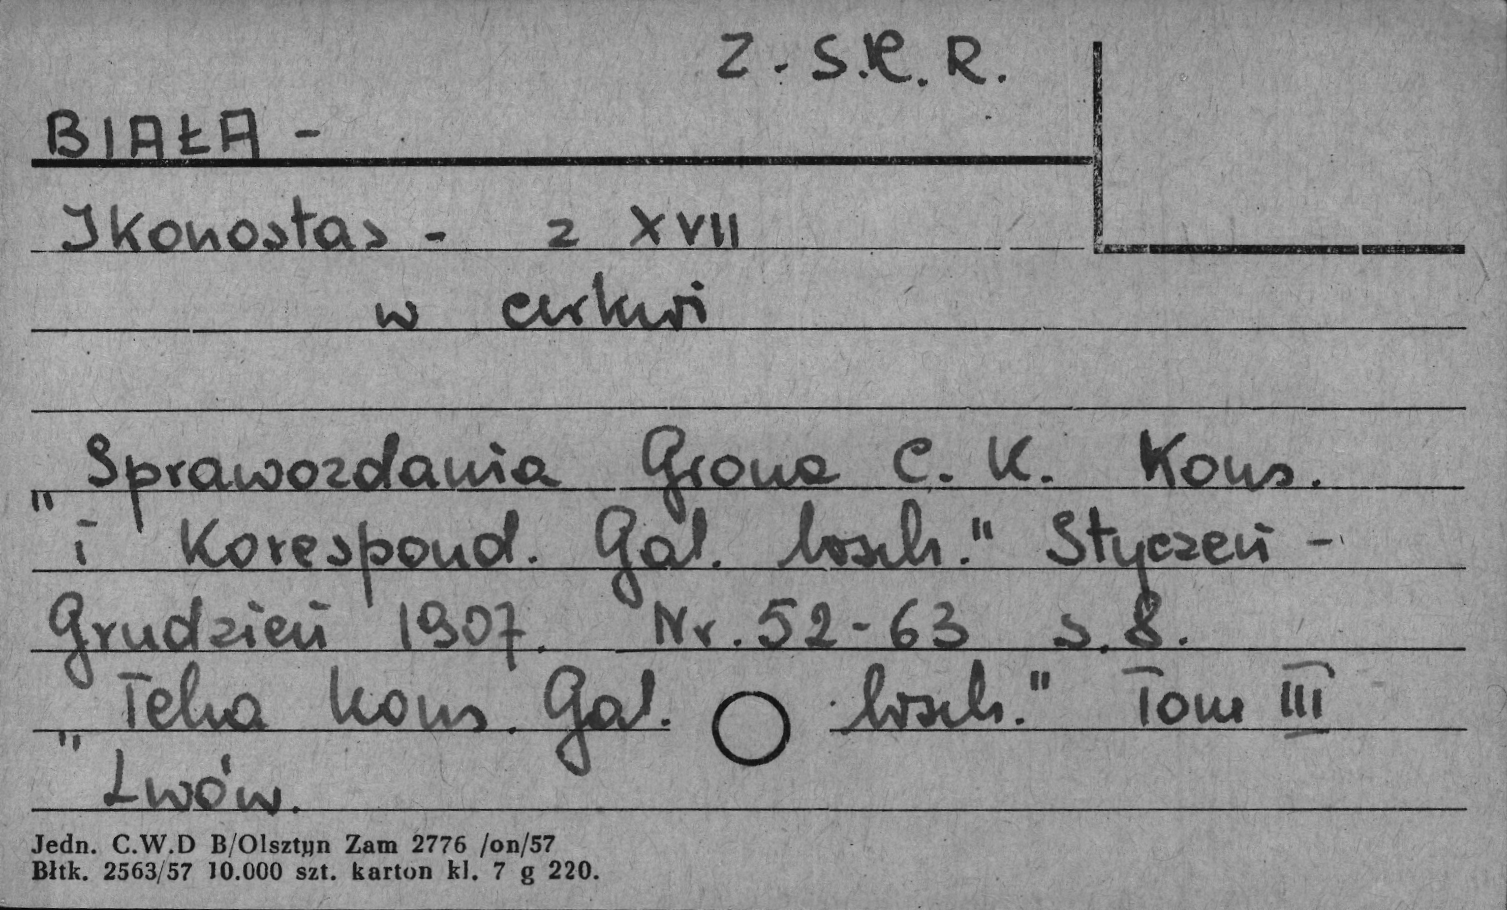 Z. S. R. R.
BIAŁA -
Ikonostas - z XVII
w cerkwi
„Sprawozdania Grona C. K. Kons.
i Korespond. Gal. wsch." Styczeń -
Grudzień 1907. Nr. 52-63 s. 8.
„Teka Kons. Gal. wsch." Tom III
Lwów.
Jedn. C.W.D B/Olsztyn Zam 2776 /on/57
Błtk. 2563/57 10.000 szt. karton kl. 7 g 220.